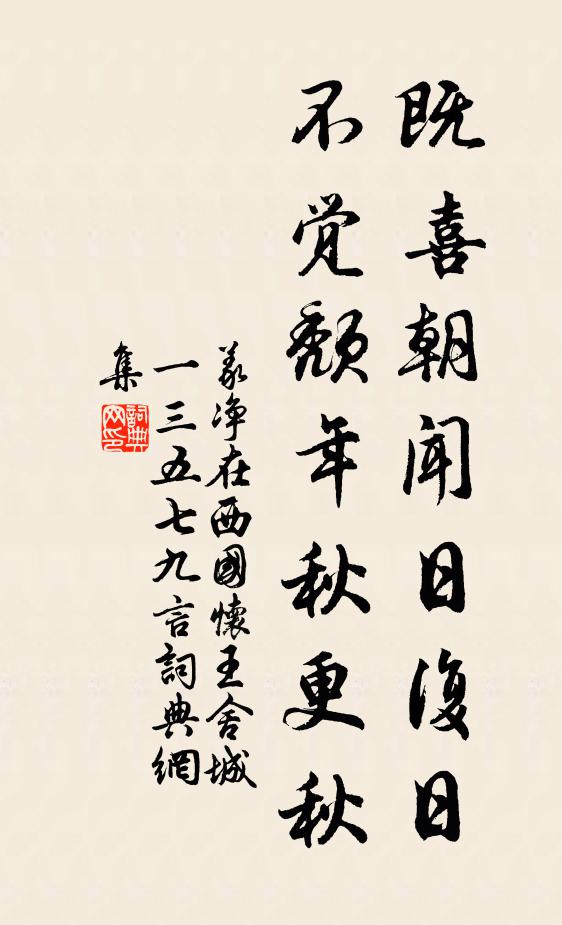 既喜朝闻日復日
不觉颓年秋更秋
义净在西國懷王舍城
一三五七九言詞典網
集
詞典
网印